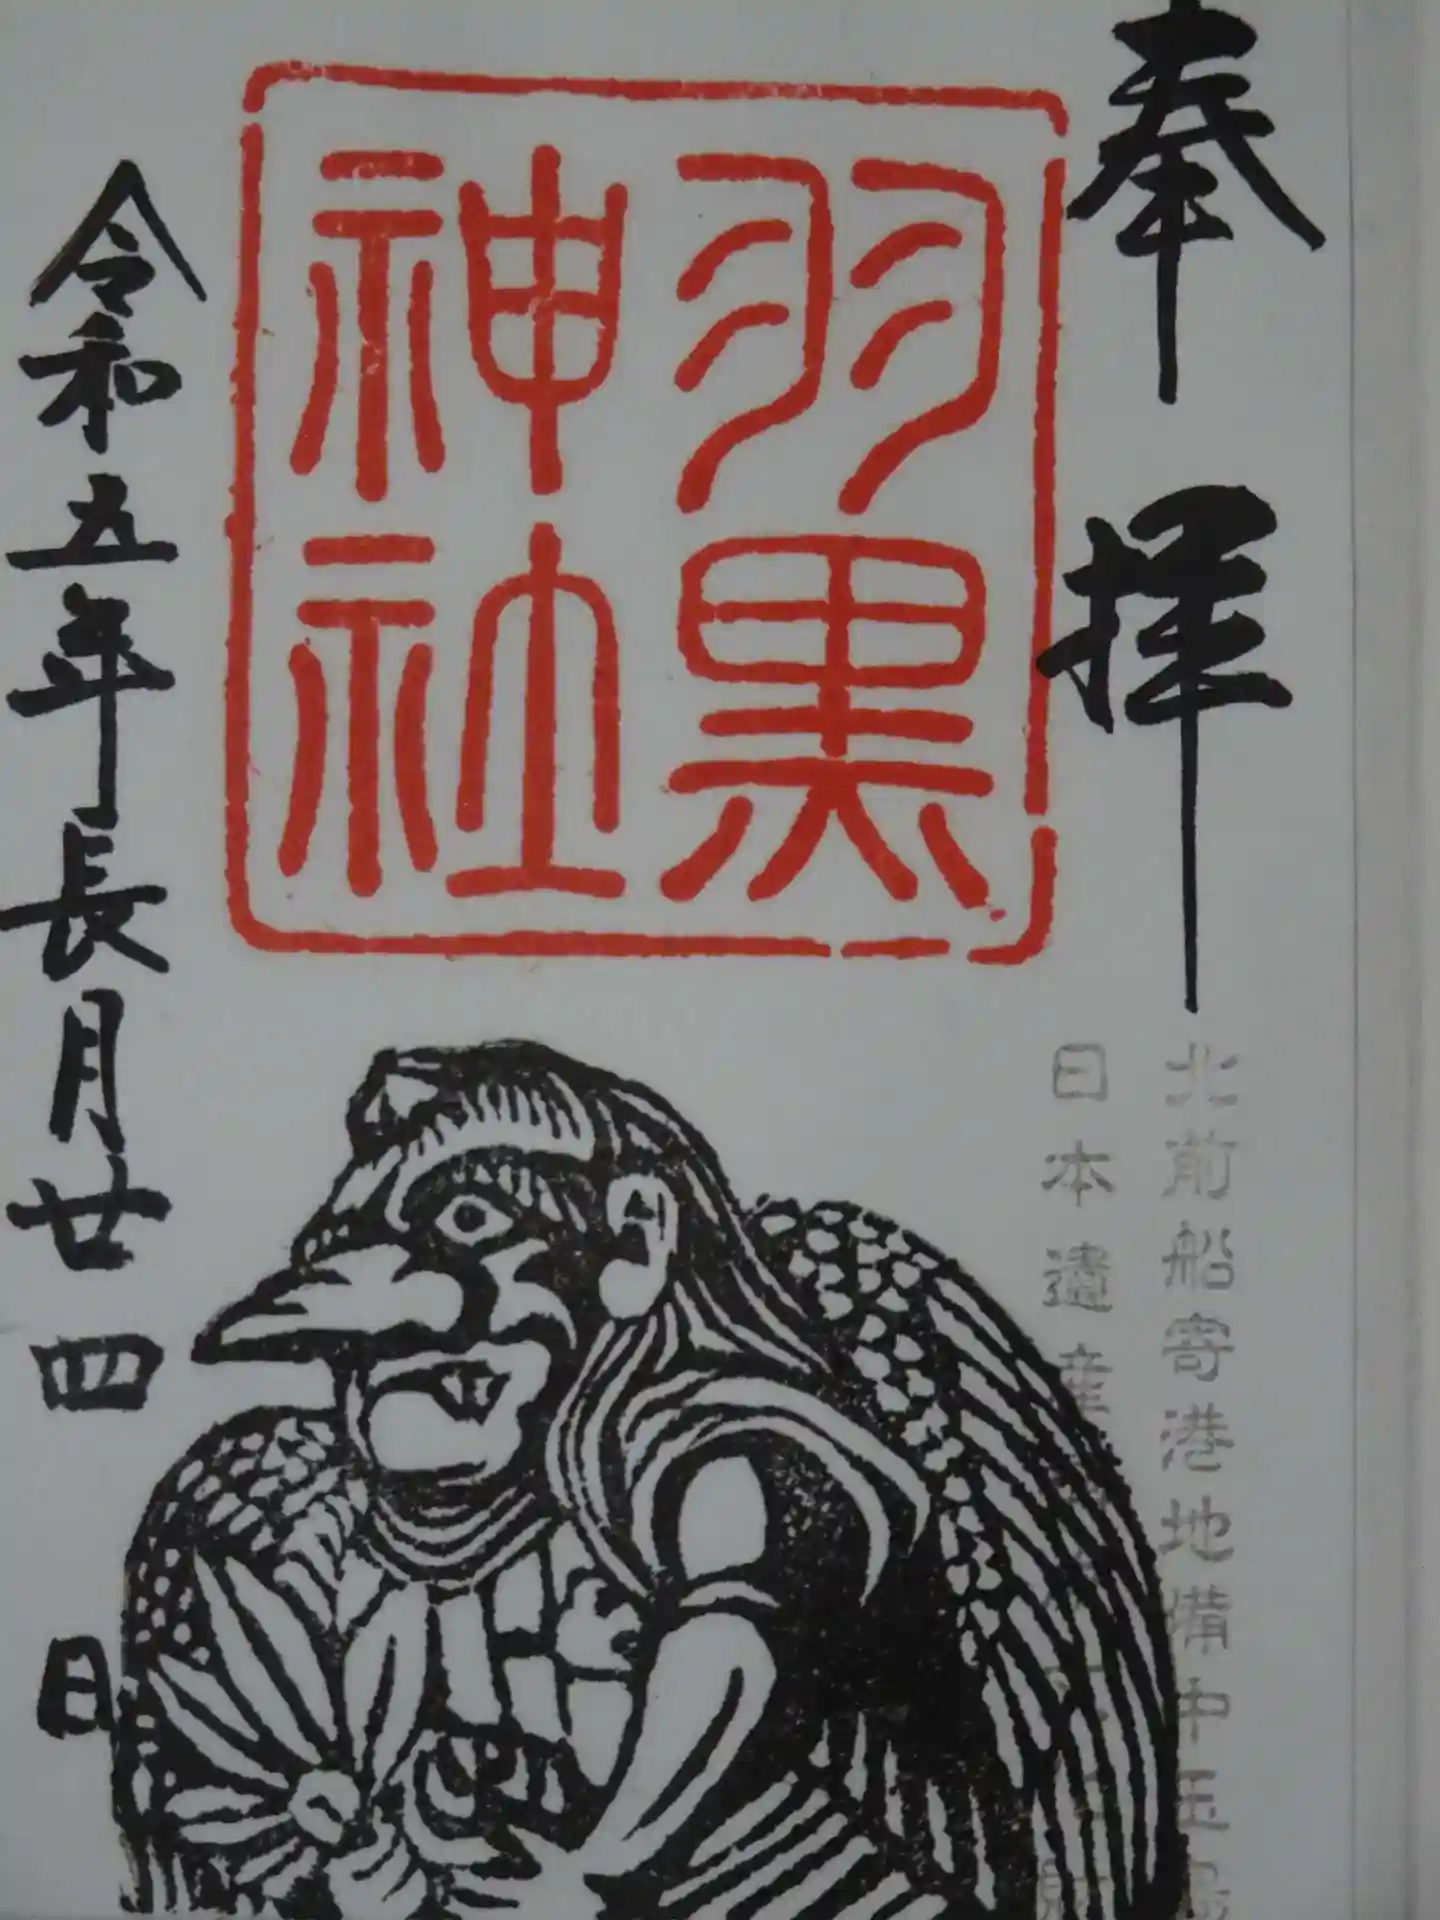 奉拝
北前船寄港地備中玉島
日本遺産
羽黒
神社
令和五年長月廿四日